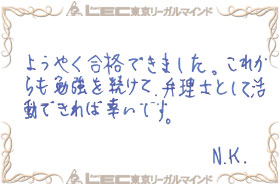 LEC東京リーガルマインド
ようやく合格できました。これか
らも勉強を続けて、弁理士として活
動できれば幸いです。
N.K.
LEC東京リーガルマインド